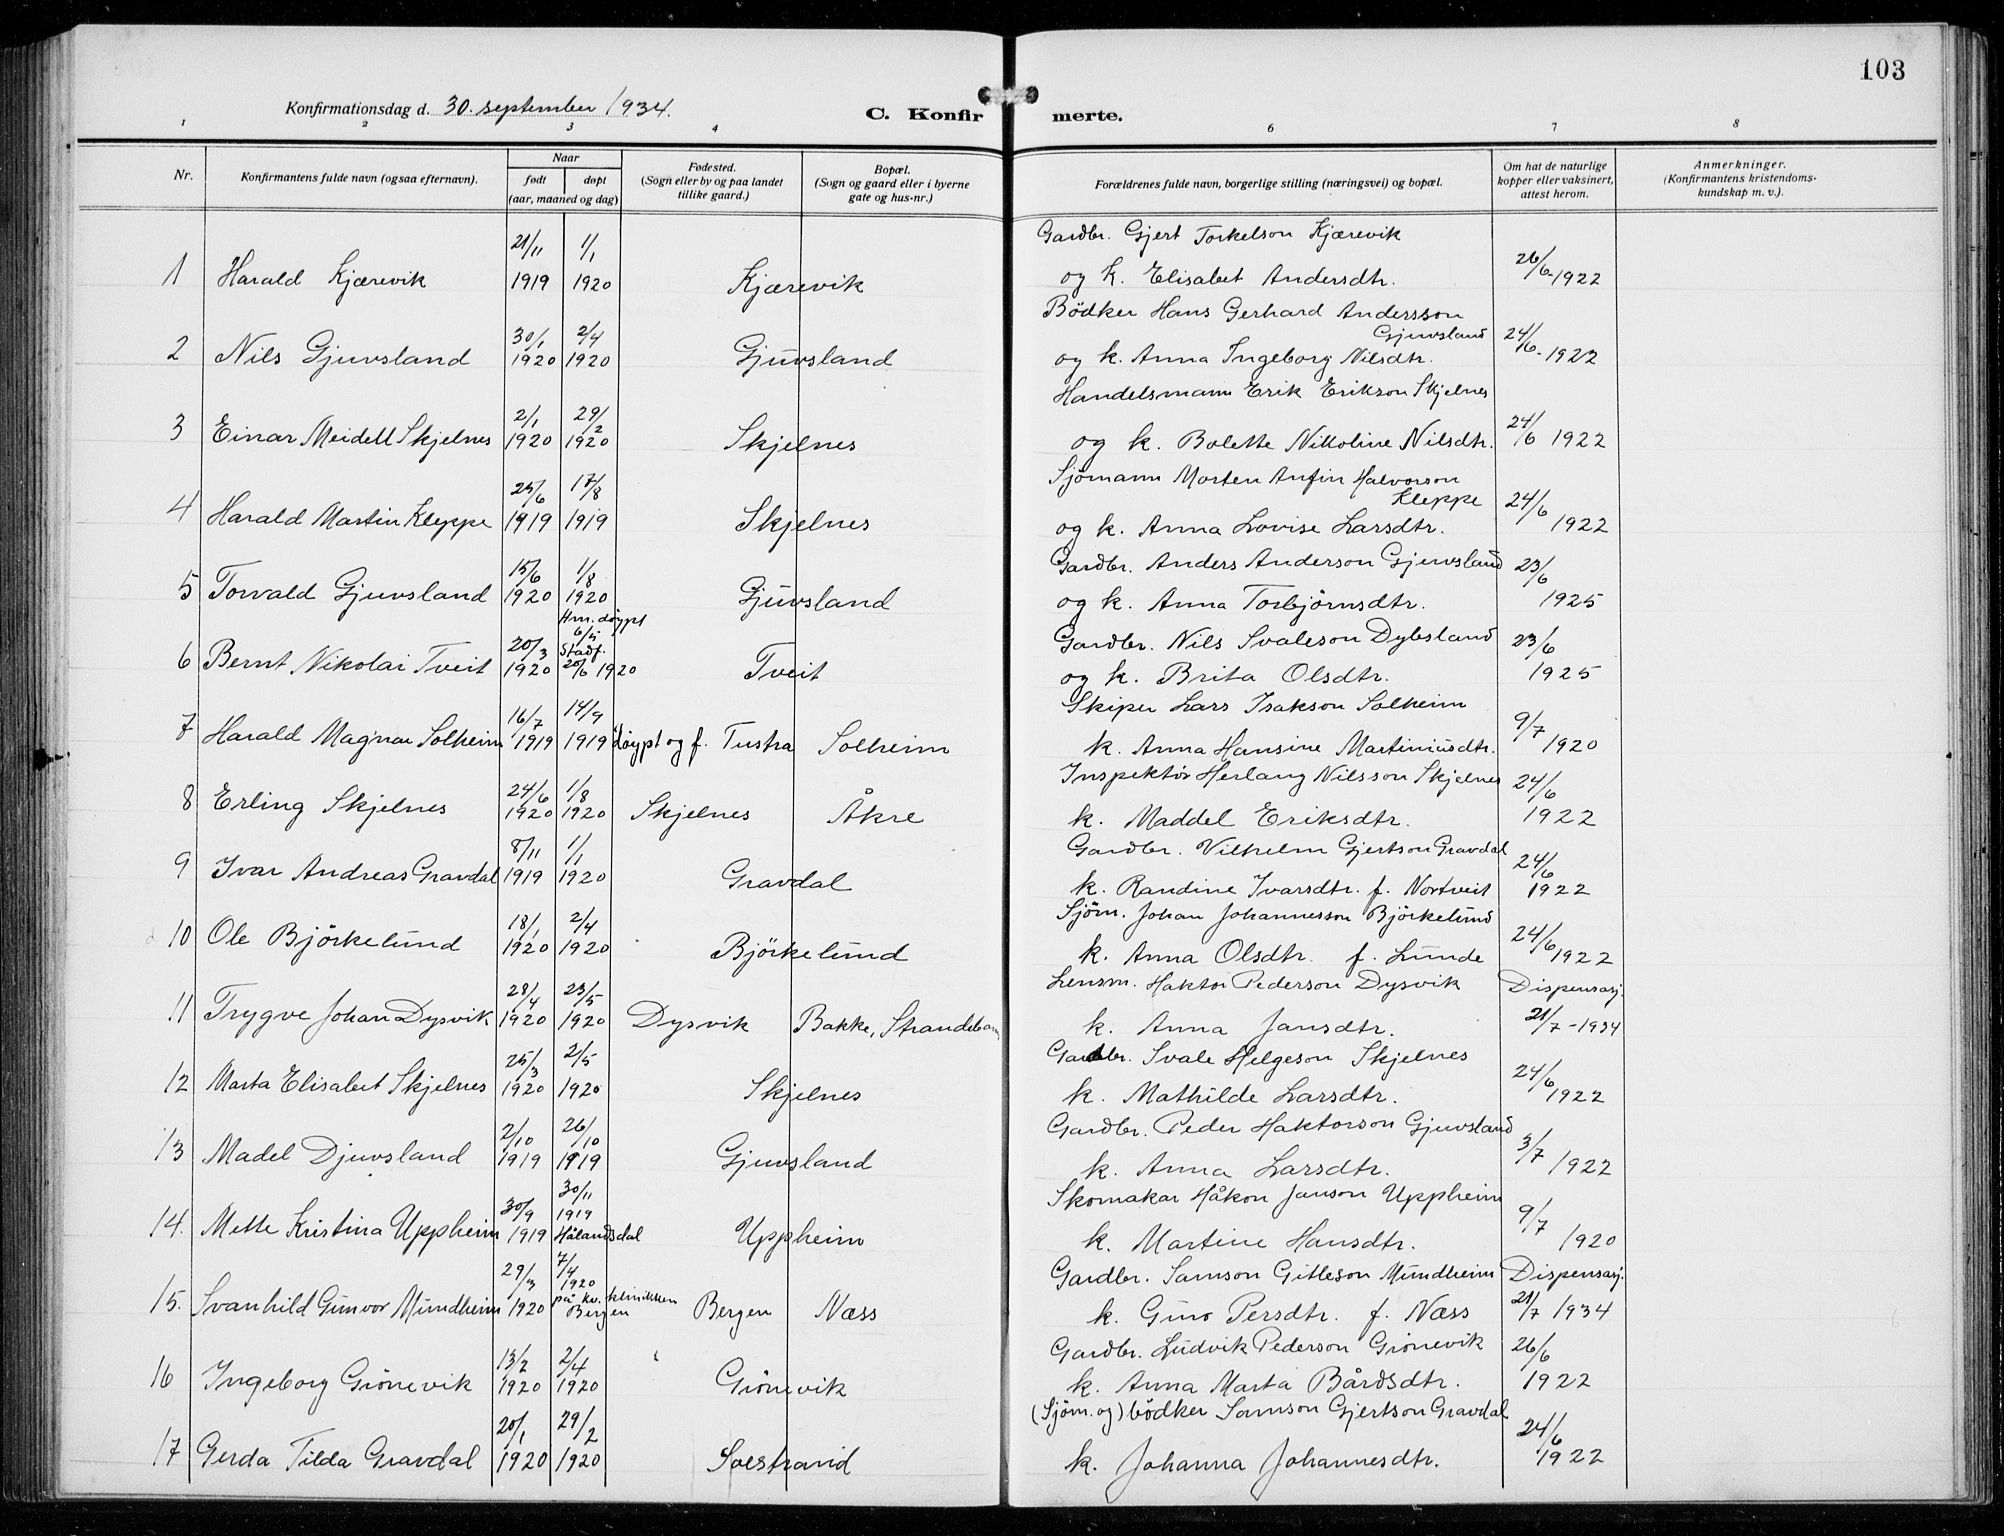 103
Konfirmationsdag d. 30. september 1934.
C. Konfirmerte.
1 2 3 4 6 7 8
Nr. Konfirmantens fulde navn (ogsaa efternavn). Naar født døpt (aar, maaned og dag) Fødested. (Sogn eller by og paa landet tillike gaard.) Bopæl. (Sogn og gaard eller i byerne gate og hus-nr.) Forældrenes fulde navn, borgerlige stilling (næringsvei) og bopæl. Om hat de naturlige kopper eller vaksinert, attest herom. Anmerkninger. (Konfirmantens kristendoms-kundskap m. v.).
21/11 1/1 Gardbr. Gjert Torkelson Kjærevik
1 Harald Kjærevik 1919 1920 Kjærevik og k. Elisabet Andersdtr. 26/6-1922
30/1 2/4 Bödker Hans Gerhard Andersson Gjuvsland
2 Nils Gjuvsland 1920 1920 Gjuvsland og k. Anna Ingeborg Nilsdtr. 24/6-1922
2/1 29/2 Handelsmann Erik Erikson Skjelnes
3 Einar Meidell Skjelnes 1920 1920 Skjelnes og k. Bolette Nikoline Nilsdtr. 24/6 1922
25/6 17/8 Sjömann Morten Anfin Halvorson Kleppe
4 Harald Martin Kleppe 1919 1919 Skjelnes og k. Anna Lovise Larsdtr. 24/6 1922
15/6 1/8 Gardbr. Anders Anderson Gjuvsland
5 Torvald Gjuvsland 1920 1920 Gjuvsland og k. Anna Torbjörnsdtr. 23/6 1925
Hm. döypt
20/3 Stadf. Gardbr. Nils Svaleson Dybsland
6 Bernt Nikolai Tveit 1920 20/6 1920 Tveit og k. Brita Olsdtr. 23/6 1925
16/7 14/9 Skiper Lars Isakson Solheim
7 Harald Magnar Solheim 1919 1919 döypt og f. Tustra Solheim k. Anna Hansine Martiniusdtr. 9/7 1920
24/6 1/8 Inspektör Herlaug Nilsson Skjelnes
8 Erling Skjelnes 1920 1920 Skjelnes Åkre k. Maddel Eriksdtr. 24/6 1922
8/11 1/1 Gardbr. Vilhelm Gjertson Gravdal
9 Ivar Andreas Gravdal 1919 1920 Gravdal k. Randine Ivarsdtr. f. Nortveit 24/6 1922
18/1 2/4 Sjöm. Johan Johannesson Björkelund
10 Ole Björkelund 1920 1920 Björkelund k. Anna Olsdtr. f. Lunde 24/6 1922
28/4 23/5 Lensm. Haktor Pederson Dysvik Dispensasj.
11 Trygve Johan Dysvik 1920 1920 Dysvik Bakke, Strandebarm k. Anna Jansdtr. 21/7-1934
25/3 2/5 Gardbr. Svale Helgeson Skjelnes
12 Marta Elisabet Skjelnes 1920 1920 Skjelnes k. Mathilde Larsdtr. 24/6 1922
2/10 26/10 Gardbr. Peder Haktorson Gjuvsland
13 Madel Djuvsland 1919 1919 Gjuvsland k. Anna Larsdtr. 3/7 1922
30/9 30/11 1919 Skomakar Håkon Janson Uppheim
14. Mette Kristina Uppheim 1919 Hålandsdal Uppheim k. Martine Hansdtr. 9/7 1920
29/3 7/4 1920 Gardbr. Samson Gitleson Mundheim Dispensasj.
15. Svanhild Gunvor Mundheim 1920 på kv. klinikken Bergen Bergen Næss k. Guro Persdtr. f. Næss 21/7 1934
13/2 2/4 Gardbr. Ludvik Pederson Grönevik
16 Ingeborg Grönevik 1920 1920 Grönevik k. Anna Marta Bårdsdtr. 26/6 1922
20/1 29/2 (Sjöm. og) bödker Samson Gjertson Gravdal
17 Gerda Tilda Gravdal 1920 1920 Solstrand k. Johanna Johannesdtr. 24/6 1922